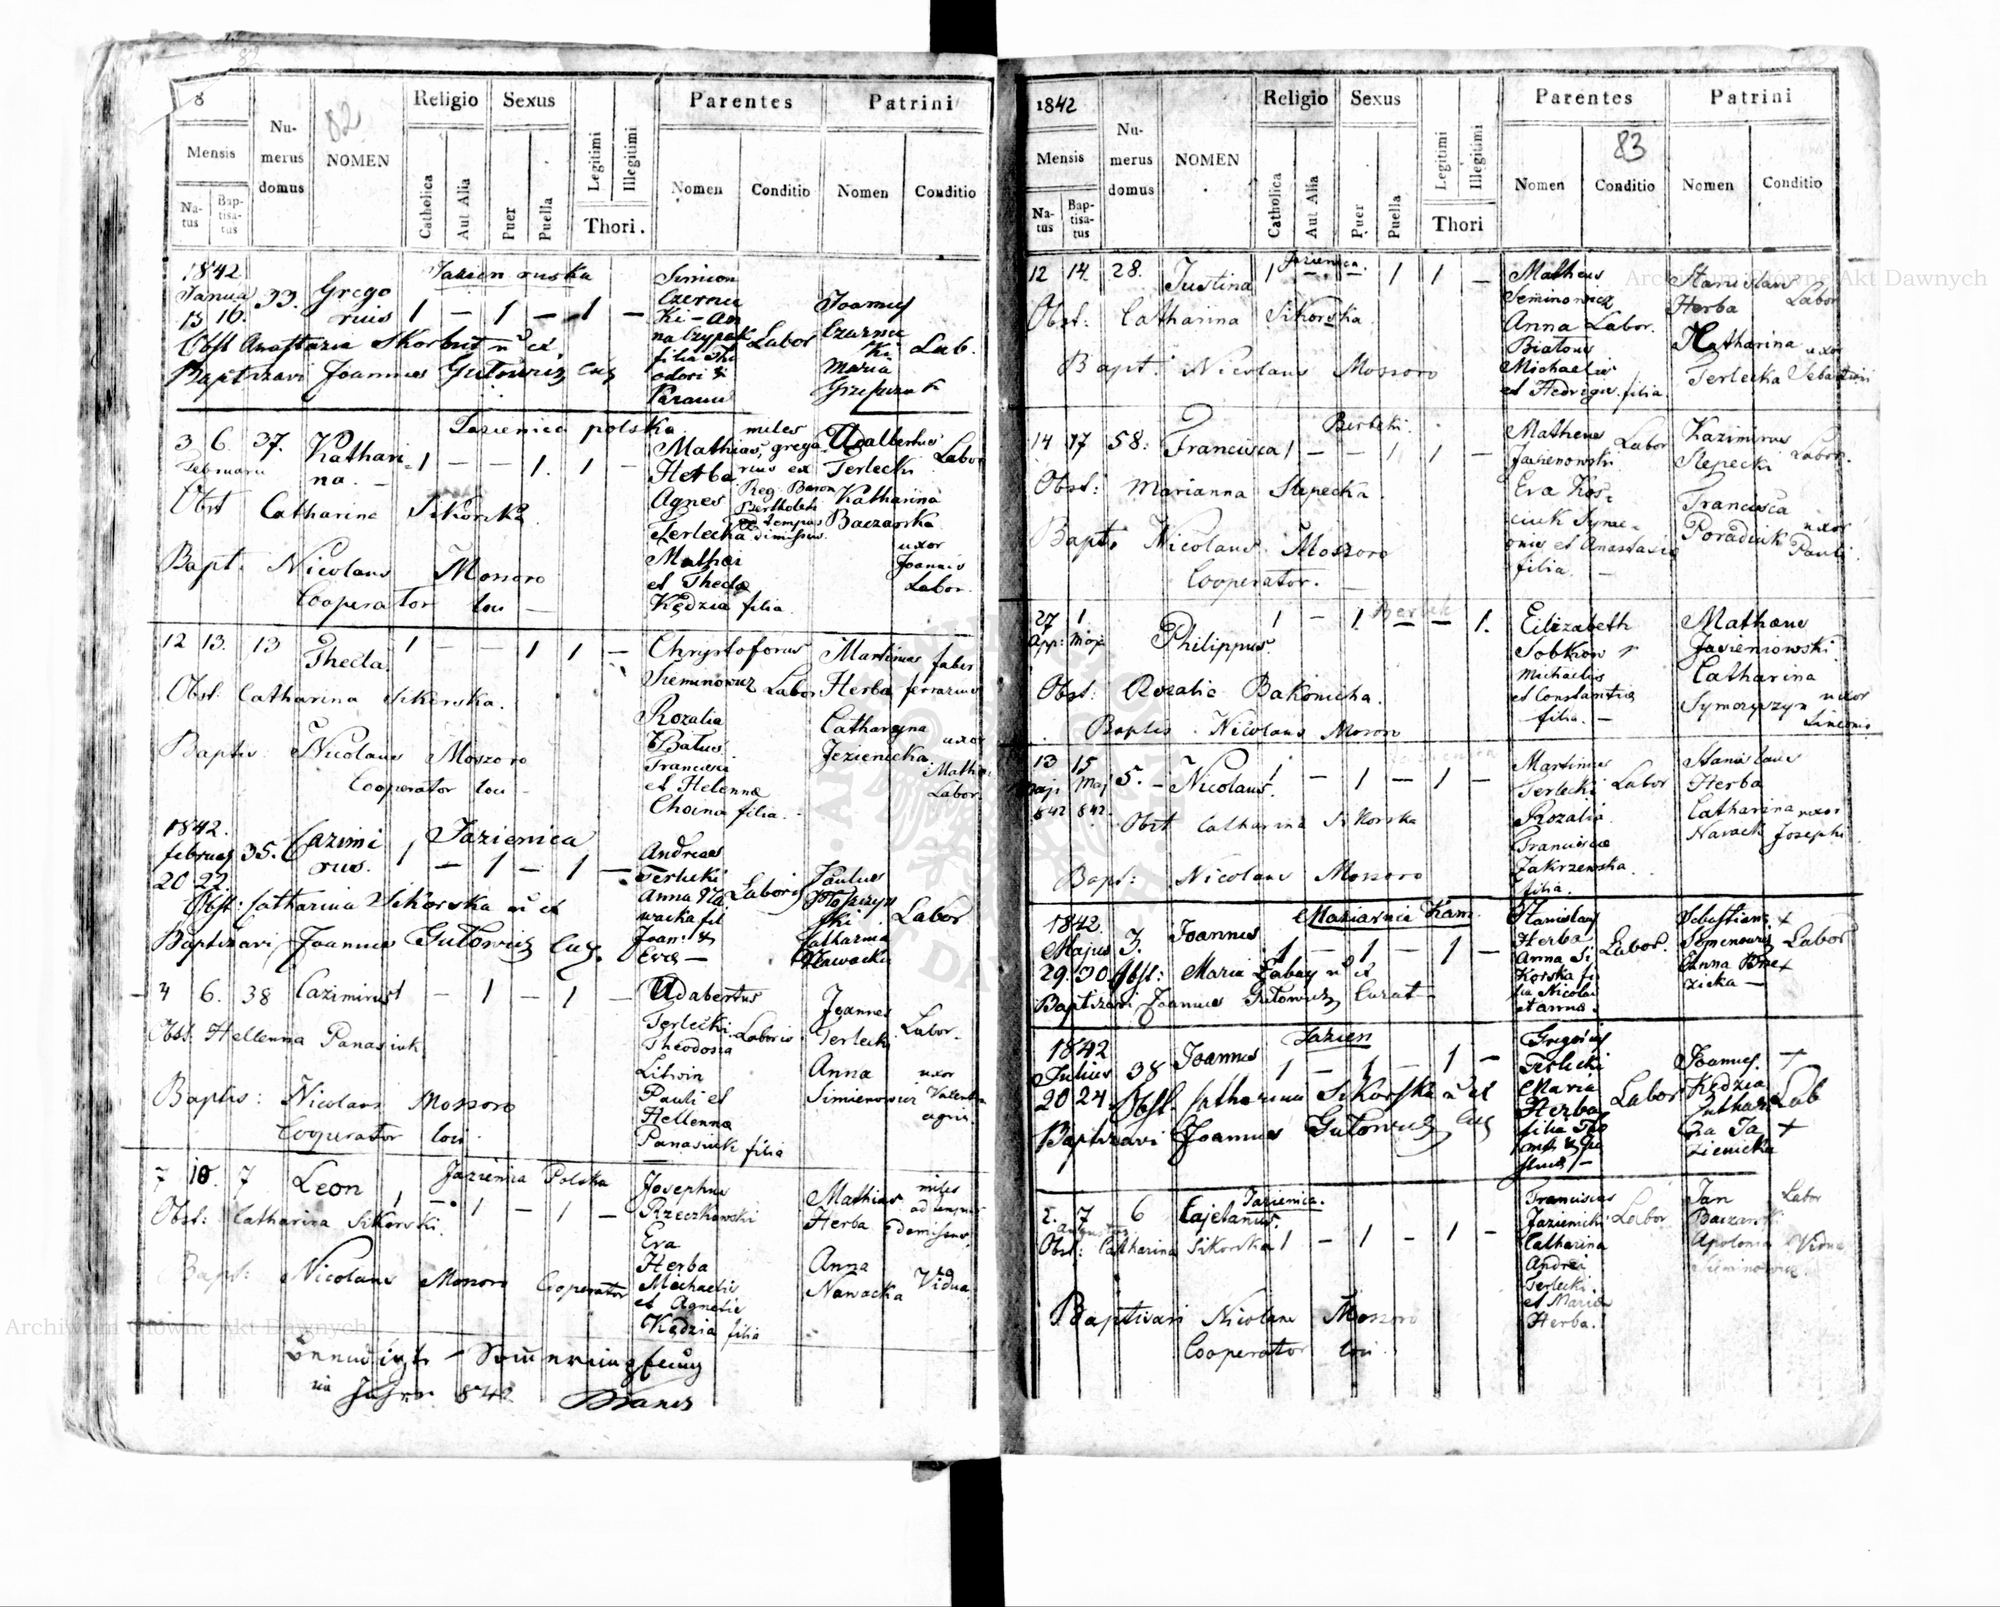 82
8
Mensis
Na-
tus
Bap-
tisa-
tus
Nu-
merus
domus
82
NOMEN
Religio
Catholica
Aut Alia
Sexus
Puer
Puella
Legitimi
Illegitimi
Thori.
Parentes
Nomen
Conditio
Patrini
Nomen
Conditio
1842
Janua
13 16.
33.
Grego
rius
Jazien ruska
1 — 1 — 1 —
Simion
Czernic
Ki - An
na Czypak
filia
odori &
Labor
Joannes
Czarnec
Ki
Maria
Lab.
Obst Anastazia Skorbut
Baptizavi Joannes Gutowicz
Jazienica polska
3 6. 37.
Februarii
Kathari
na. —
1 — — 1. 1 —
Mathias
Herba
Agnes
Terlecka
Mathei
et Thecla
Kędzia filia.
miles
grega
rius ex
Reg. Baron
Bertholeti
ad tempus
dimissus.
Adalbertus
Terlecki
Katharina
Baczarska
uxor
Joannis
Labor.
Labor
Obst Catharina Sikorska
Bapt. Nicolaus Moszoro
Cooperator loci —
12 13. 13
Thecla.
1 — — 1 1 —
Chrystoforus
Sieminowicz
Labor
Rozalia
Białus
Francisci
et Helennæ
Choina filia. —
Martinus faber
Herba ferrarius
Catharyna
Jezienicka
uxor
Mathei
Labor.
Obst. Catharina Sikorska.
Baptis: Nicolaus Moszoro
Cooperator loci —
1842.
februar
20 22
35.
Cazimi
rus.
Jazienica
1 — 1 — 1 —
Andreas
Terlecki
Anna Na
wacka fil
Joan: &
Eva —
Laboris
Paulus
ski
Catharina
Nawacka
Labor
Obst: Catharina Sikorska
Baptizavi Joannes Gutowicz
4 6. 38
Cazimirus
1 — 1 — 1 —
Adabertus
Terlecki
Laboris
Theodosia
Litwin
Pauli et
Hellennæ
Panasiuk filia
Joannes
Terlecki
Labor.
Anna uxor
Simienowicz Valentin
agric.
Obst. Hellenna Panasiuk
Baptis: Nicolaus Moszoro
Cooperator loci.
7 10. 7
Leon
Jazienica Polska
1 — 1 — 1 —
Josephus
Rzeczkowski
Eva
Herba
Michaelis
et Agnetis
Kędzia filia
Mathias miles
Herba ad tempus
demissus.
Anna
Nawacka Vidua.
Obst: Catharina Sikorski.
Bapt: Nicolaus Moszoro Cooperator
842
1842
Mensis
Na-
tus
Bap-
tisa-
tus
Nu-
merus
domus
NOMEN
Religio
Catholica
Aut Alia
Sexus
Puer
Puella
Legitimi
Illegitimi
Thori
Parentes
83
Nomen
Conditio
Patrini
Nomen
Conditio
12 14. 28.
Justina
Jazienica.
1 — — 1 1 —
Matheus
Seminowicz
Anna Labor.
Białous
Michaelis
et Hedvigis filia.
Stanislaus
Herba
Labor
Katharina uxor
Terlecka Sebastiani
Obst: Catharina Sikorska.
Bapt: Nicolaus Moszoro
Berbeki.
14 17 58.
Francisca
1 — — 1 1 —
Matheus
Jasienowski
Labor
Eva Kos-
ciuk
onis et Anastasia
filia. —
Kazimirus
Slepecki
Labor.
Francisca
Poradiuk uxor
Pauli
Obst: Marianna Slepecka.
Bapt: Nicolaus Moszoro
Cooperator. —
27 1
App: Maja
Philippus.
1 — 1. — — 1.
Elizabeth
Sobkow
Michaelis
et Constantia
filia. —
Matheus
Jasieniowski
Catharina
Symczyszyn uxor
Simeonis
Obst: Rozalia Bakonicha.
Baptis. Nicolaus Moszoro
13 15
Maji Maj
842 842.
5. — Nicolaus.
1 — 1 — 1 —
Martinus
Terlecki
Labor
Rozalia
Francisca
Zakrzewska
filia.
Stanislaus
Herba
Catharina uxor
Nawack Josephi
Obst Catharina Sikorska
Bapt: Nicolaus Moszoro
Maziarnia Kam.
1842.
Majus
29. 30
3.
Joannes
1 — 1 — 1 —
Stanislaus
Herba
Anna Si
Korska fi
lia Nicolai
et Anna.
Labor.
Sebastian +
Labor
Anna
zicka —
Obst: Maria Labay
Baptizavi Joannes Gutowicz Curat
Jazien
1842
Julius
20 24
38
Joannes
1 — 1 — 1 —
Gregorius
Terlecki
Maria
Herba
filia
Labor
Joannes. +
Kędzia
Cathari
na Ja +
zienicka
Lab
Obst. Catharina Sikorska
Baptizavi Joannes Gutowicz
2. 7 6
Augustus
Cajetanus.
Jazienica.
1 — 1 — 1 —
Franciscus
Jazienicki
Labor
Catharina
Andrei
Terlecki
et Maria
Herba.
Jan Labor
Baczarski
Apolonia Vidua
Sieminowicz.
Obst: Catharina Sikorska
Baptisavi Nicolaus Moszoro
Cooperator loci.
Archiwum Główne Akt Dawnych
Archiwum Główne Akt Dawnych